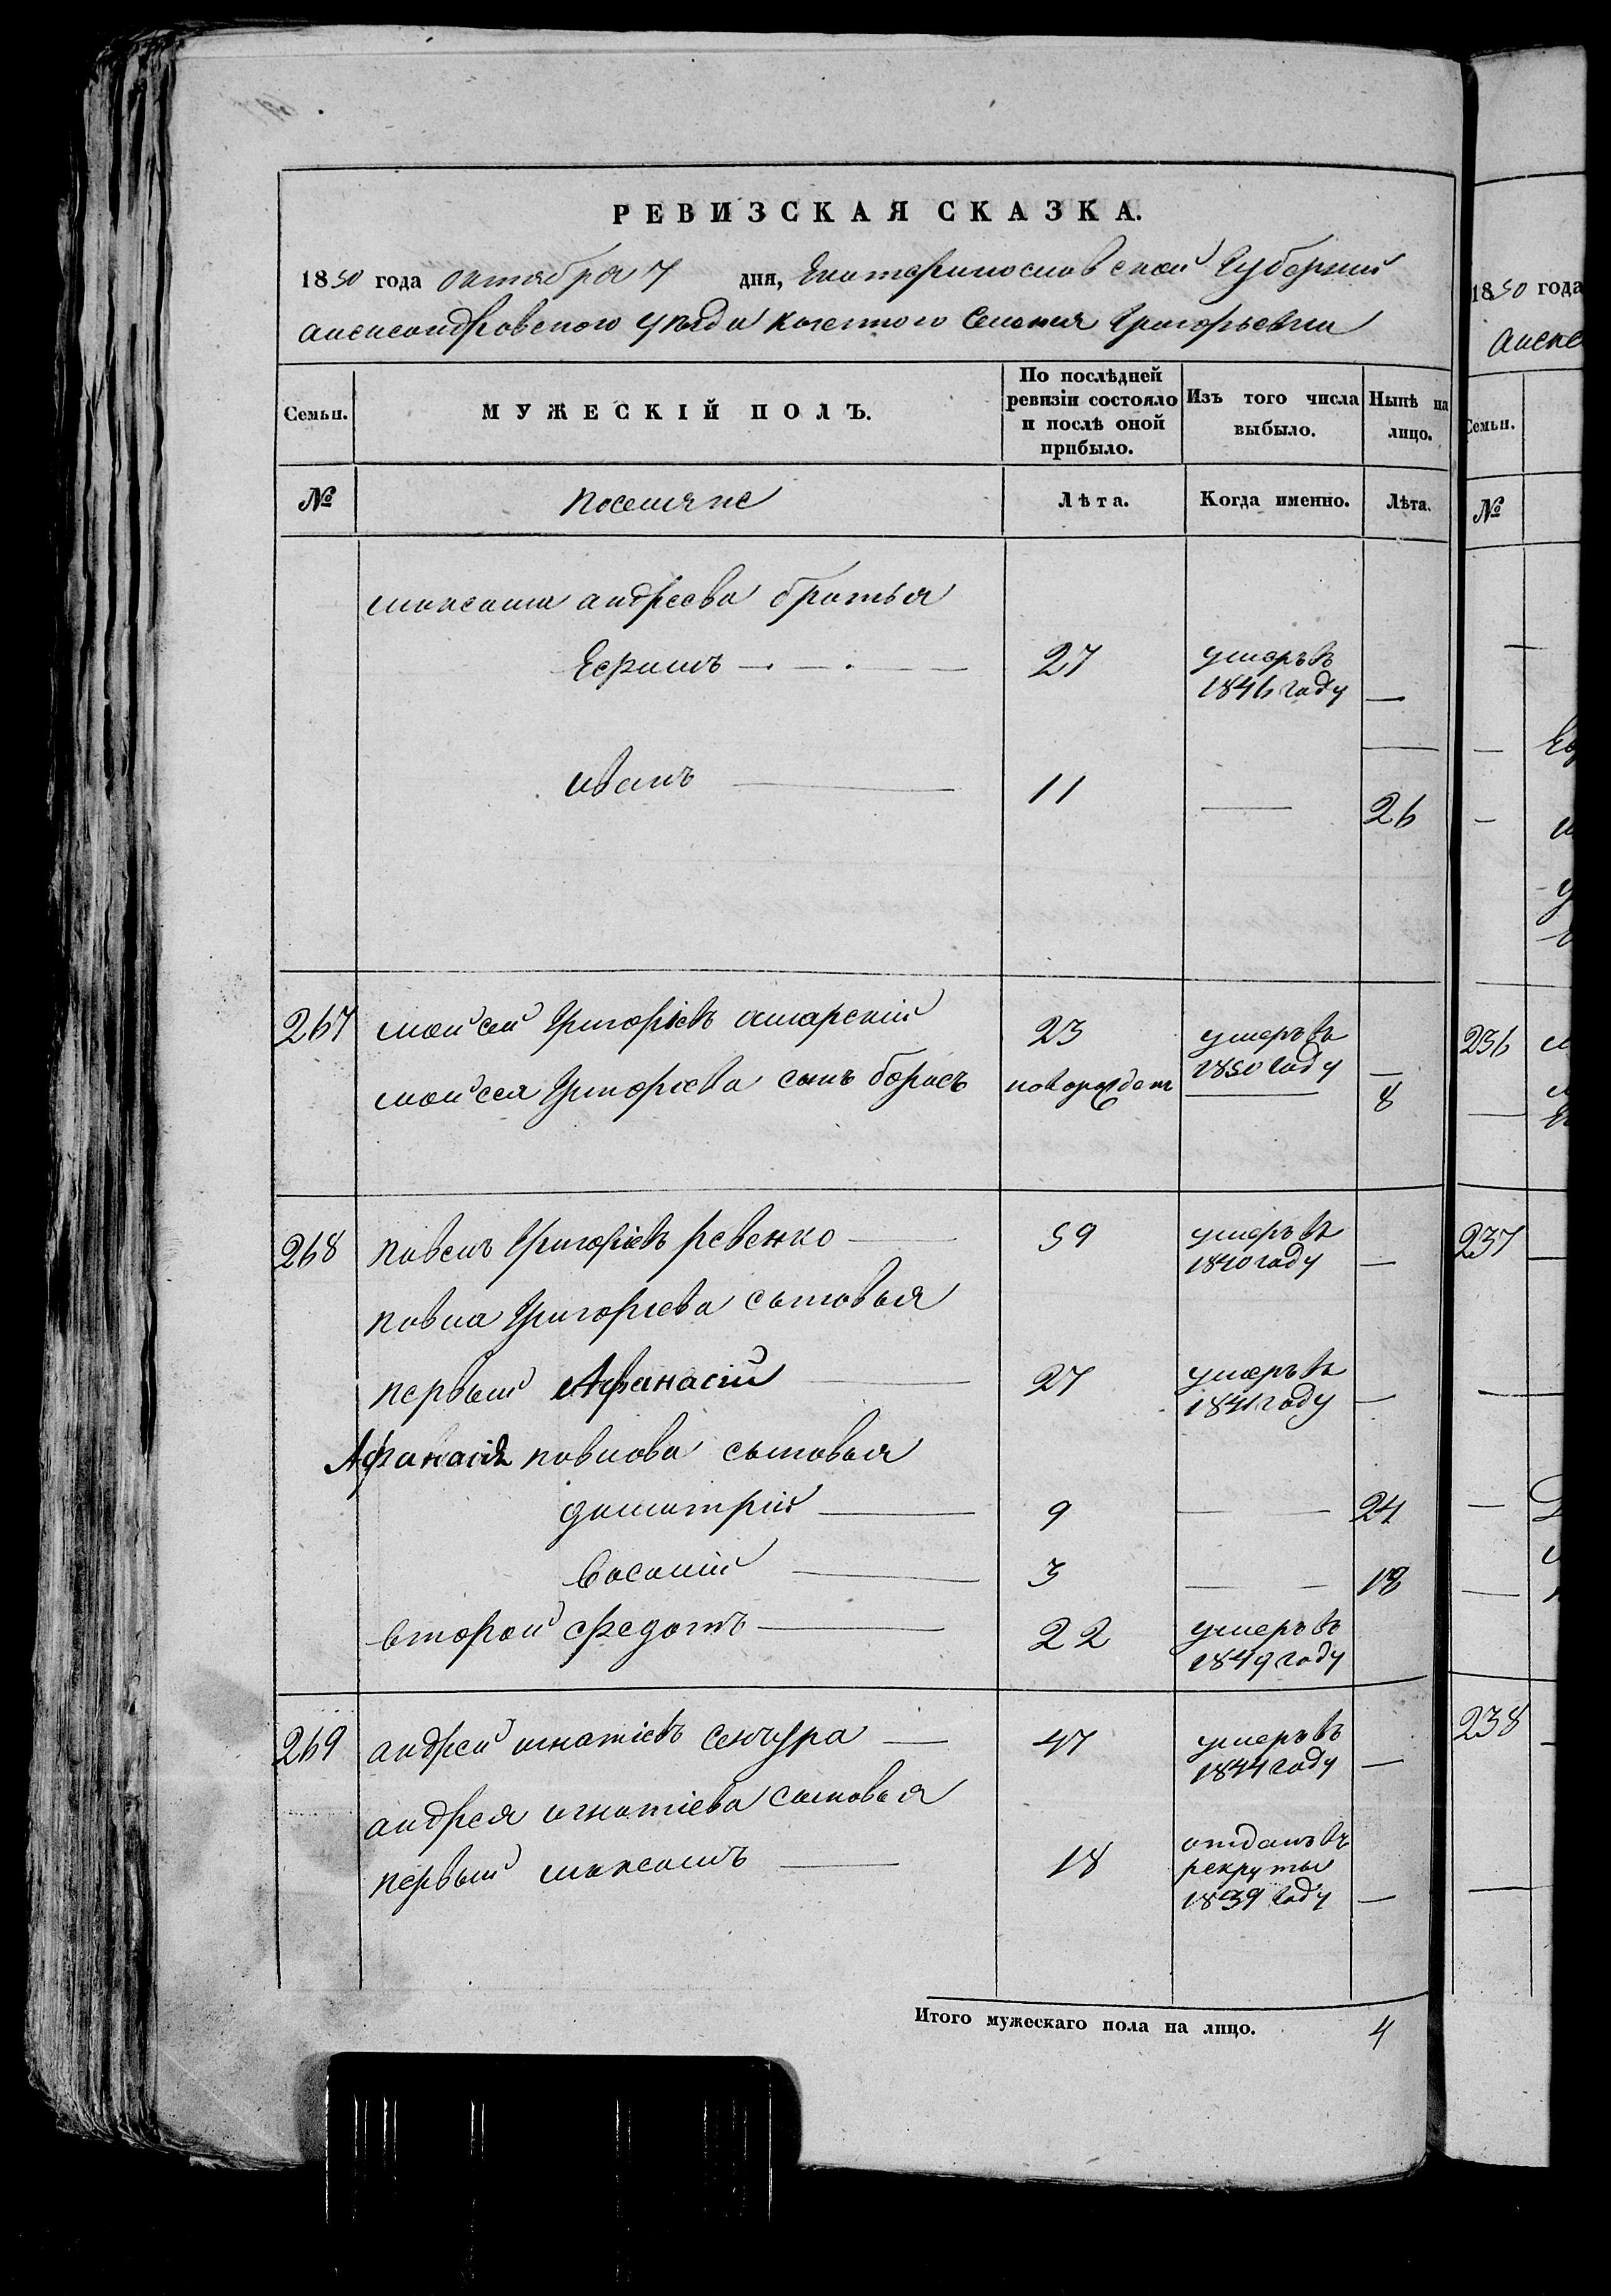 РЕВИЗСКАЯ СКАЗКА.
1850 года октября 7 дня, Екатеринославской Губерніи
александровского уезда казенного Селенія Григорьевки
Семьи. МУЖЕСКІЙ ПОЛЪ. По послѣдней ревизіи состояло и послѣ оной прибыло. Изъ того числа выбыло. Нынѣ на лицо.
№ поселяне Лѣта. Когда именно. Лѣта.
максима андреева братья
Ефимъ 27 умеръ въ 1846 году —
иванъ 11 — 26
267 мойсей Григоріевъ 23 умеръ въ 1850 году —
мойсея Григоріева сынъ борисъ новорожден — 8
268 павелъ Григоріевъ ревенко 59 умеръ въ 1840 году —
павла Григоріева сыновья
первый Афанасій 27 умеръ въ 1841 году —
Афанасія павлова сыновья
димитрій 9 — 24
василій 3 — 18
второй федотъ 22 умеръ въ 1849 году
269 андрей игнатіевъ Сенчура 47 умеръ въ 1844 году —
андрея игнатіева сыновья
первый максимъ 18 отданъ въ рекруты 1839 году —
Итого мужескаго пола на лицо. 4
1850 года
алекс
Семьи.
№
236
237
238